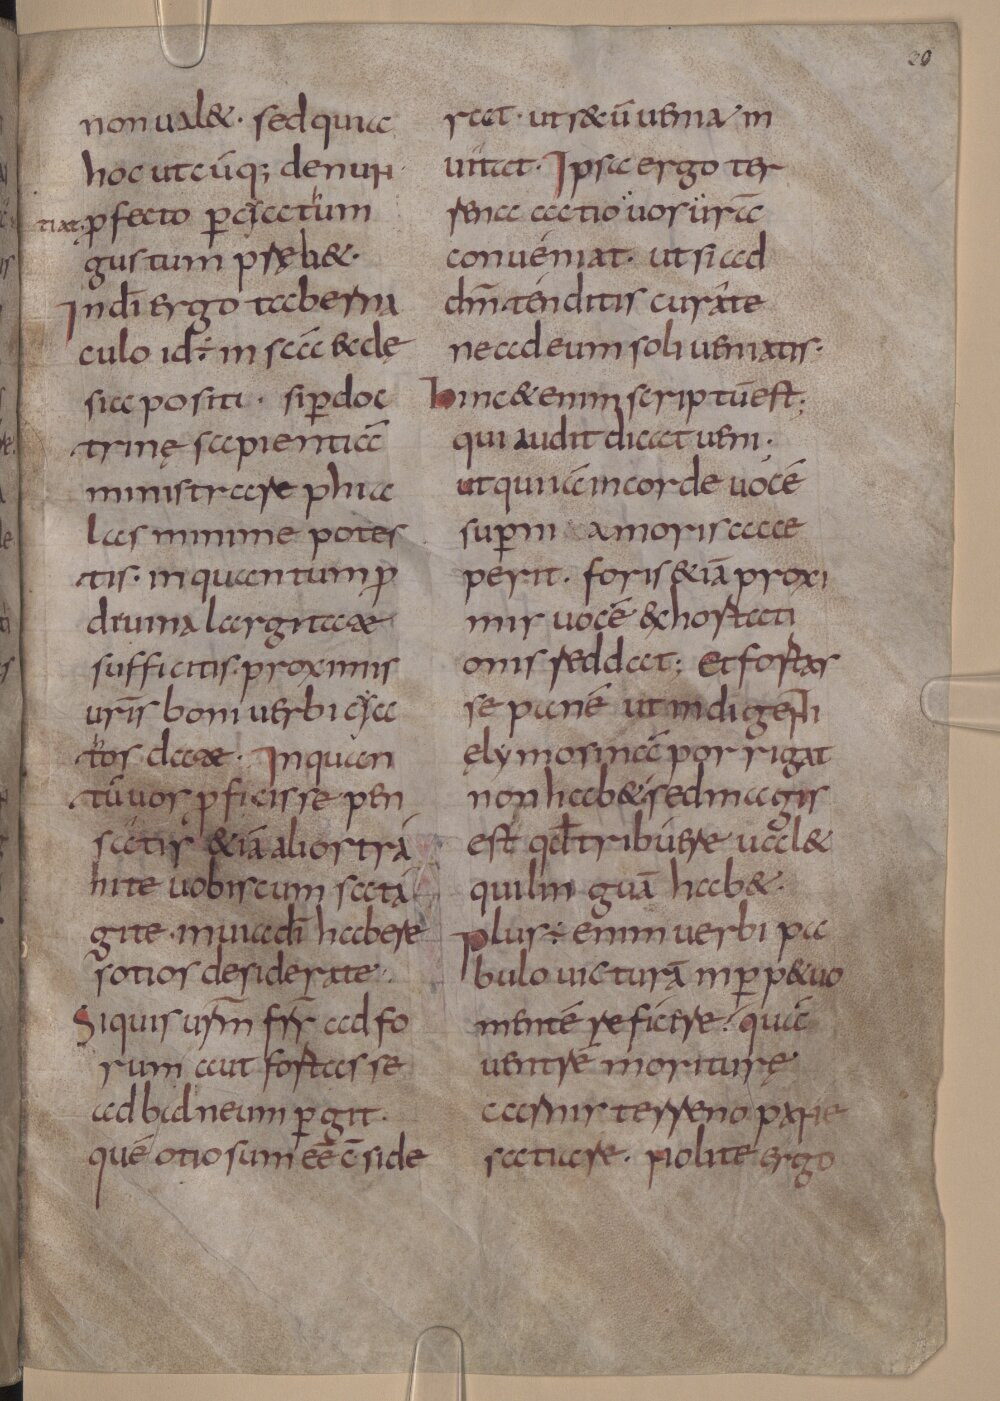 20
non ual&. sed quia
hoc utcūq; denun
tiat; pfecto p cyatum
gustum pręb&.
In dī ergo taberna
culo id÷ in scā ecclę
sia positi. si p doc
trinę sapientiā
ministrare phia
las minime potes
tis. in quantum p
diuina largitate
sufficitis. proximis
uris boni uerbi cya
tos date. In quan
tū uos pficisse pen
satis &iā alios trá
hite uobiscum satā
gite. in uia dī habere
sotios desiderate.
Si quis urm frr ad fo
rum aut fortasse
ad balneum pgit.
quē otiosum eē c̄side
rat. ut s&ū ueniat in
uitat. Ipsa ergo ter
rena actio uos urā
conueniat. ut si ad
dm̄ tenditis curate
ne ad eum soli ueniatis.
hinc &enim scriptū est;
qui audit dicat ueni.
ut qui iā in corde uocē
supni amoris acce
perit. foris &iā proxi
mis uocē exhortati
onis reddat; Et fortas
se panē ut indigenti
ęlymosinā porrigat
non hab& sed magis
est qd tribuere ual&
qui linguā hab&.
Plus÷ enim uerbi pa
bulo uicturā in pp&uo
mentē reficere. quā
uentrē moriturę
carnis terreno pane
satiare. Nolite ergo